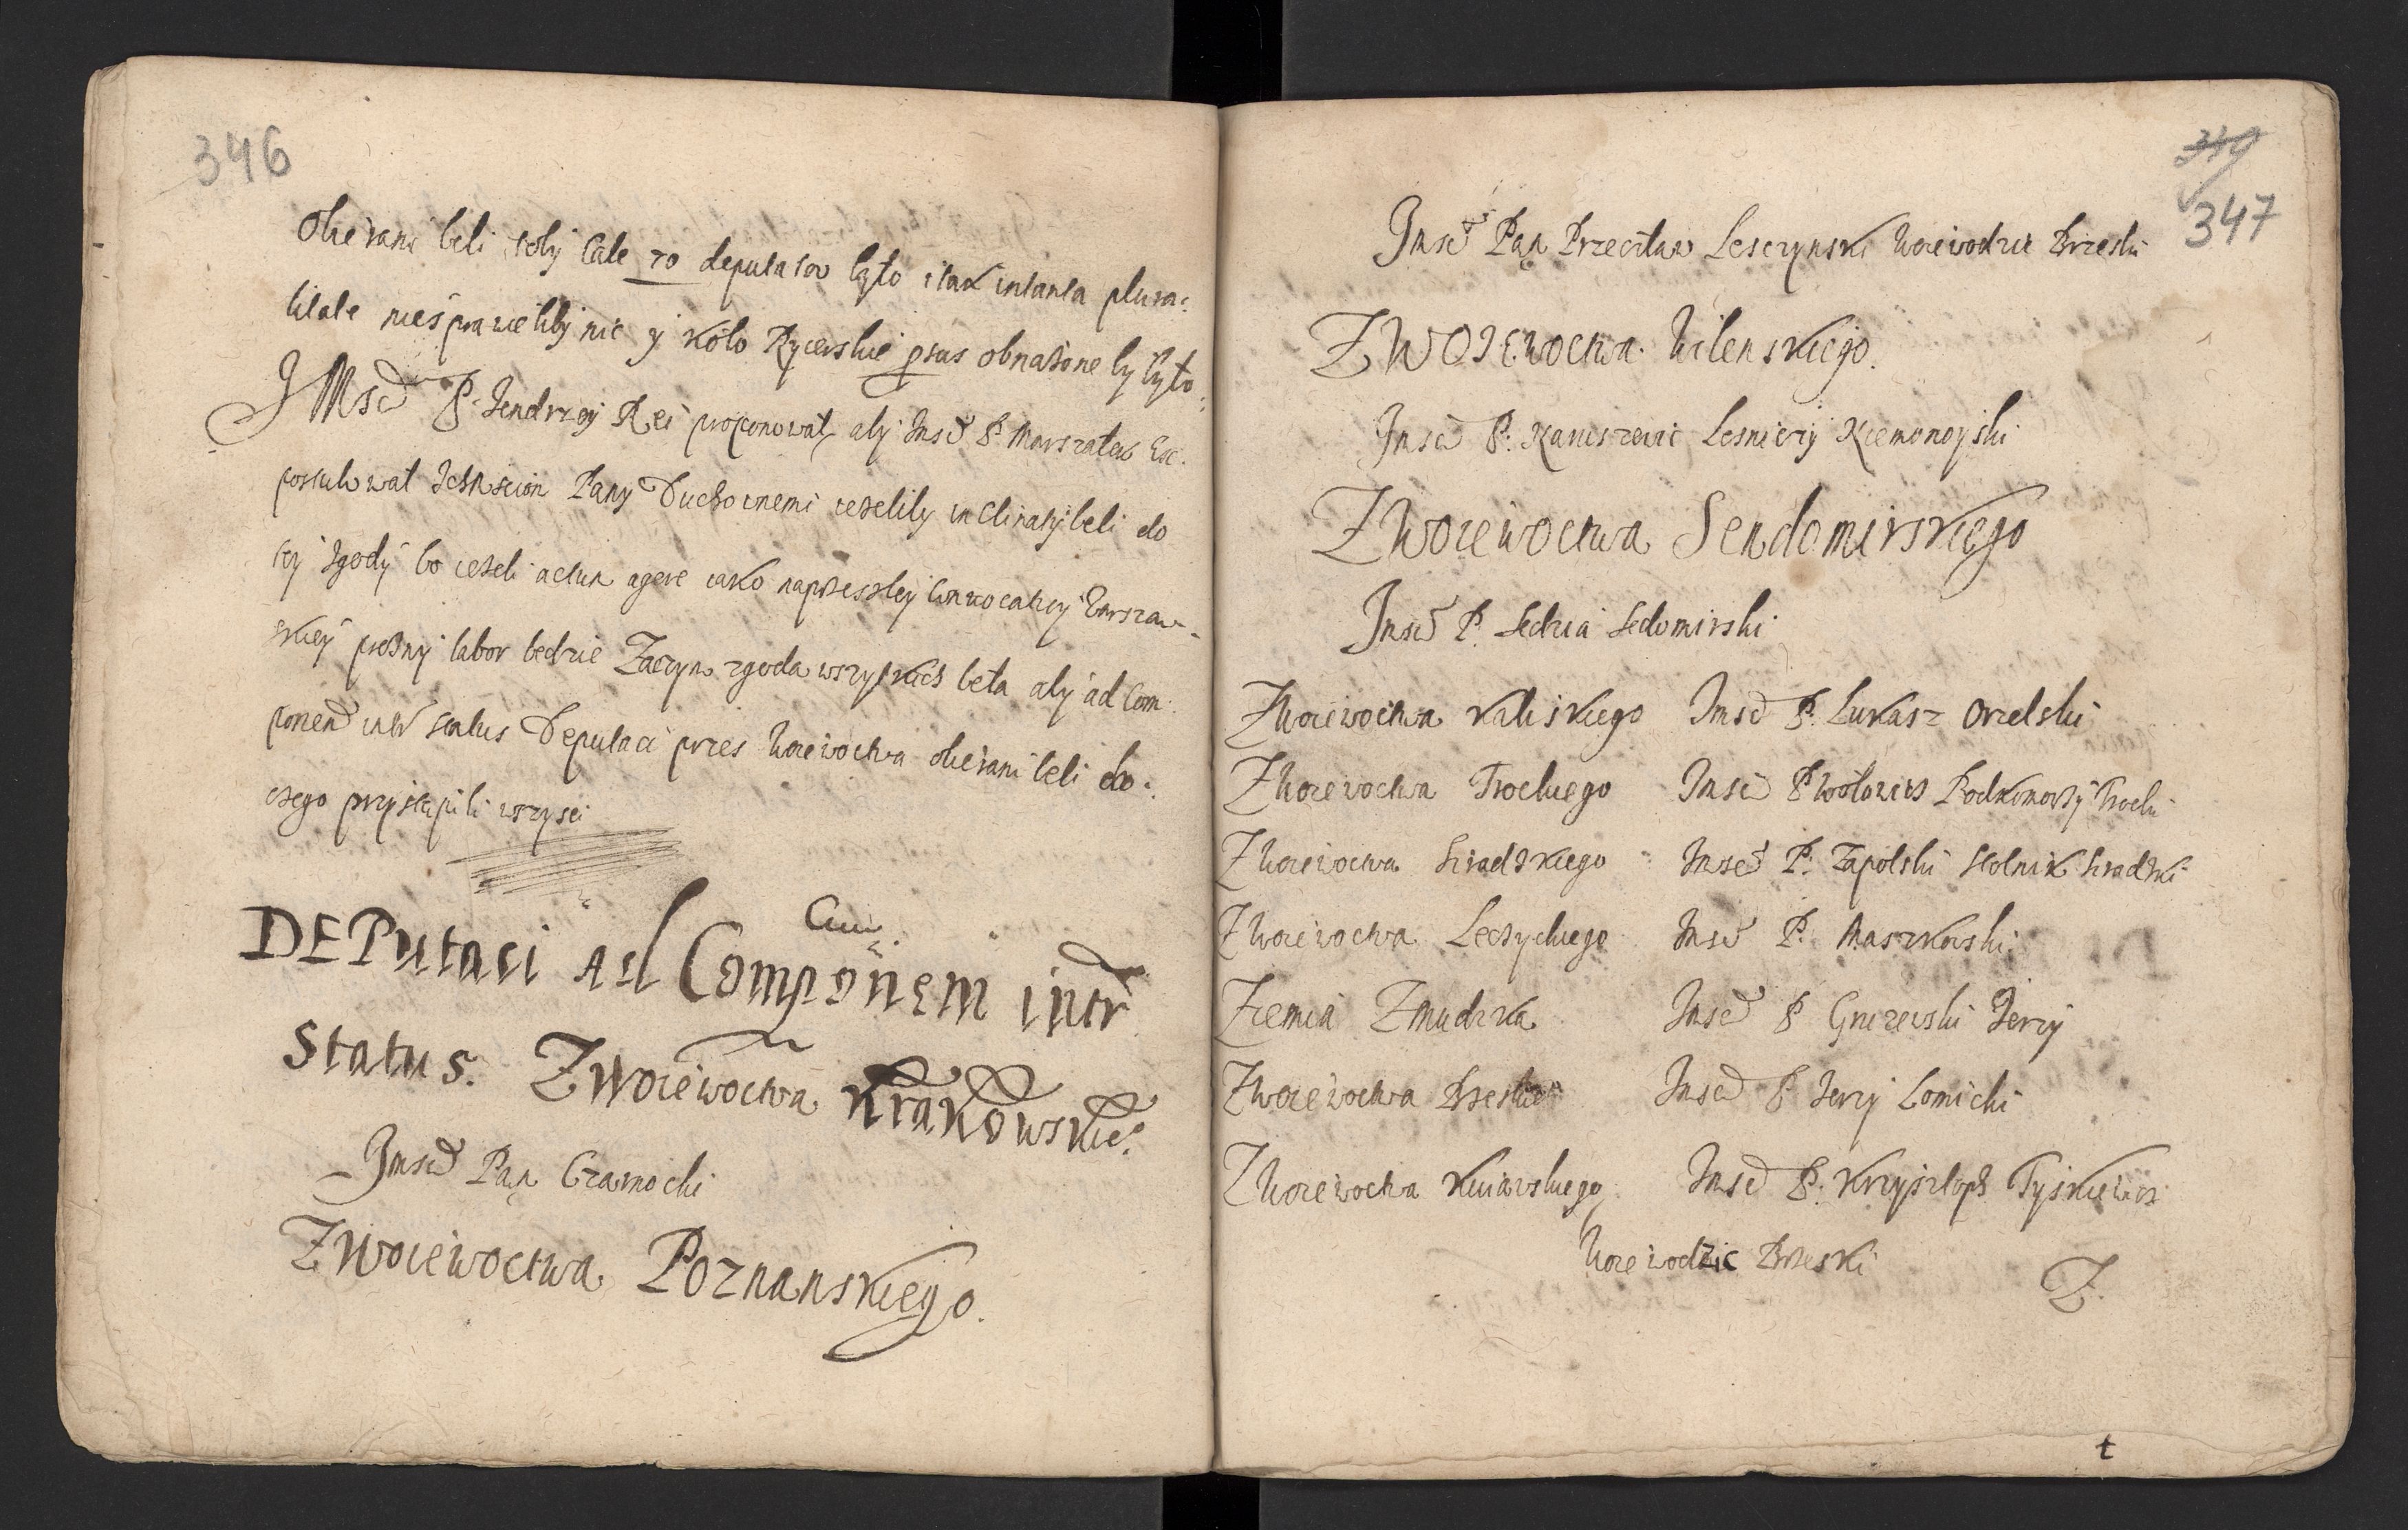 346
obierani beli toby cale 70 deputatow było i tak in tanta plura-
litate niesprawieliby nic y koło Rycerskie prsus obnażone by było.
JMsć P. Jendrzey Rei proponował, aby Jmsć P. Marszałek Ex-
postulował Ichmscion Pany Duchownemi ieżeliby inclinaty beli do
tey zgody bo ieżeli actum agere iako naprzeszley Conuocatiey Warszaw-
skiey prożny labor bedzie Zaczym zgoda wszystkich beła aby ad Com-
ponend intr status Deputaci przes Woiewoctwa obierani beli do
czego przystąpili wszysci
DEPutaci Ad Componem intr
Status. Z Woiewoctwa Krakowskie°.
Jmsć Pan Czarnocki
Z Woiewoctwa Poznanskiego.
349
347
Jmsć Pan Przecław Lesczynski Woiewodzic Brzeski
Z WOIEwoctwa Wilenskiego.
Jmsć P. Kaniszewic Lesniczy Niemonoyski
Z Woiewoctwa Sendomirskiego
Jmsć P. Sedzia Sedomirski
Z Woiewoctwa Kaliskiego Jmsć P. Lukasz Orzelski
Z Woiewoctwa Trockiego Jmsć P Wołowicz Podkomorzy Trocki
Z Woiewoctwa Siradzkiego Jmsć P. Zapolski Stolnik Siradzki
Z Woiewoctwa Leczyckiego Jmsć P. Maszkowski
Ziemia Zmudzka Jmsć P Gruzewski Jerzy
Z Woiewoctwa Brzeskie° Jmsć P Jerzy Lomicki
Z Woiewoctwa Kuiawskiego Jmsć P. Krzysztoph Tyskiewicz
Woiewodzic Brzeski
Z.
t